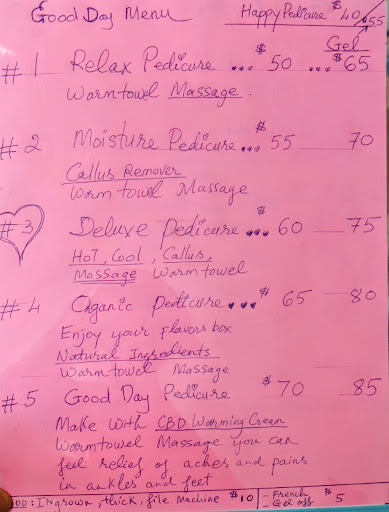 Good Day Menu
Happy Pedicure $40/$55
Gel
#1 Relax Pedicure ... $50 $65
Warm towel Massage.
#2 Moisture Pedicure... $55 70
Callus Remover
Warm towel Massage
#3 Deluxe Pedicure ... $60 75
HoT, Cool, Callus,
Massage Warm towel
#4 Organic Pedicure... $65 80
Enjoy your flavors box
Natural Ingredients
Warm towel Massage
#5 Good Day Pedicure $70 85
Make with CBD Warming Cream
Warm towel Massage you can
feel relief of aches and pains
in ankles and feet
DD: Ingrown, thick, file Machine $10
- French
- Gel off $5